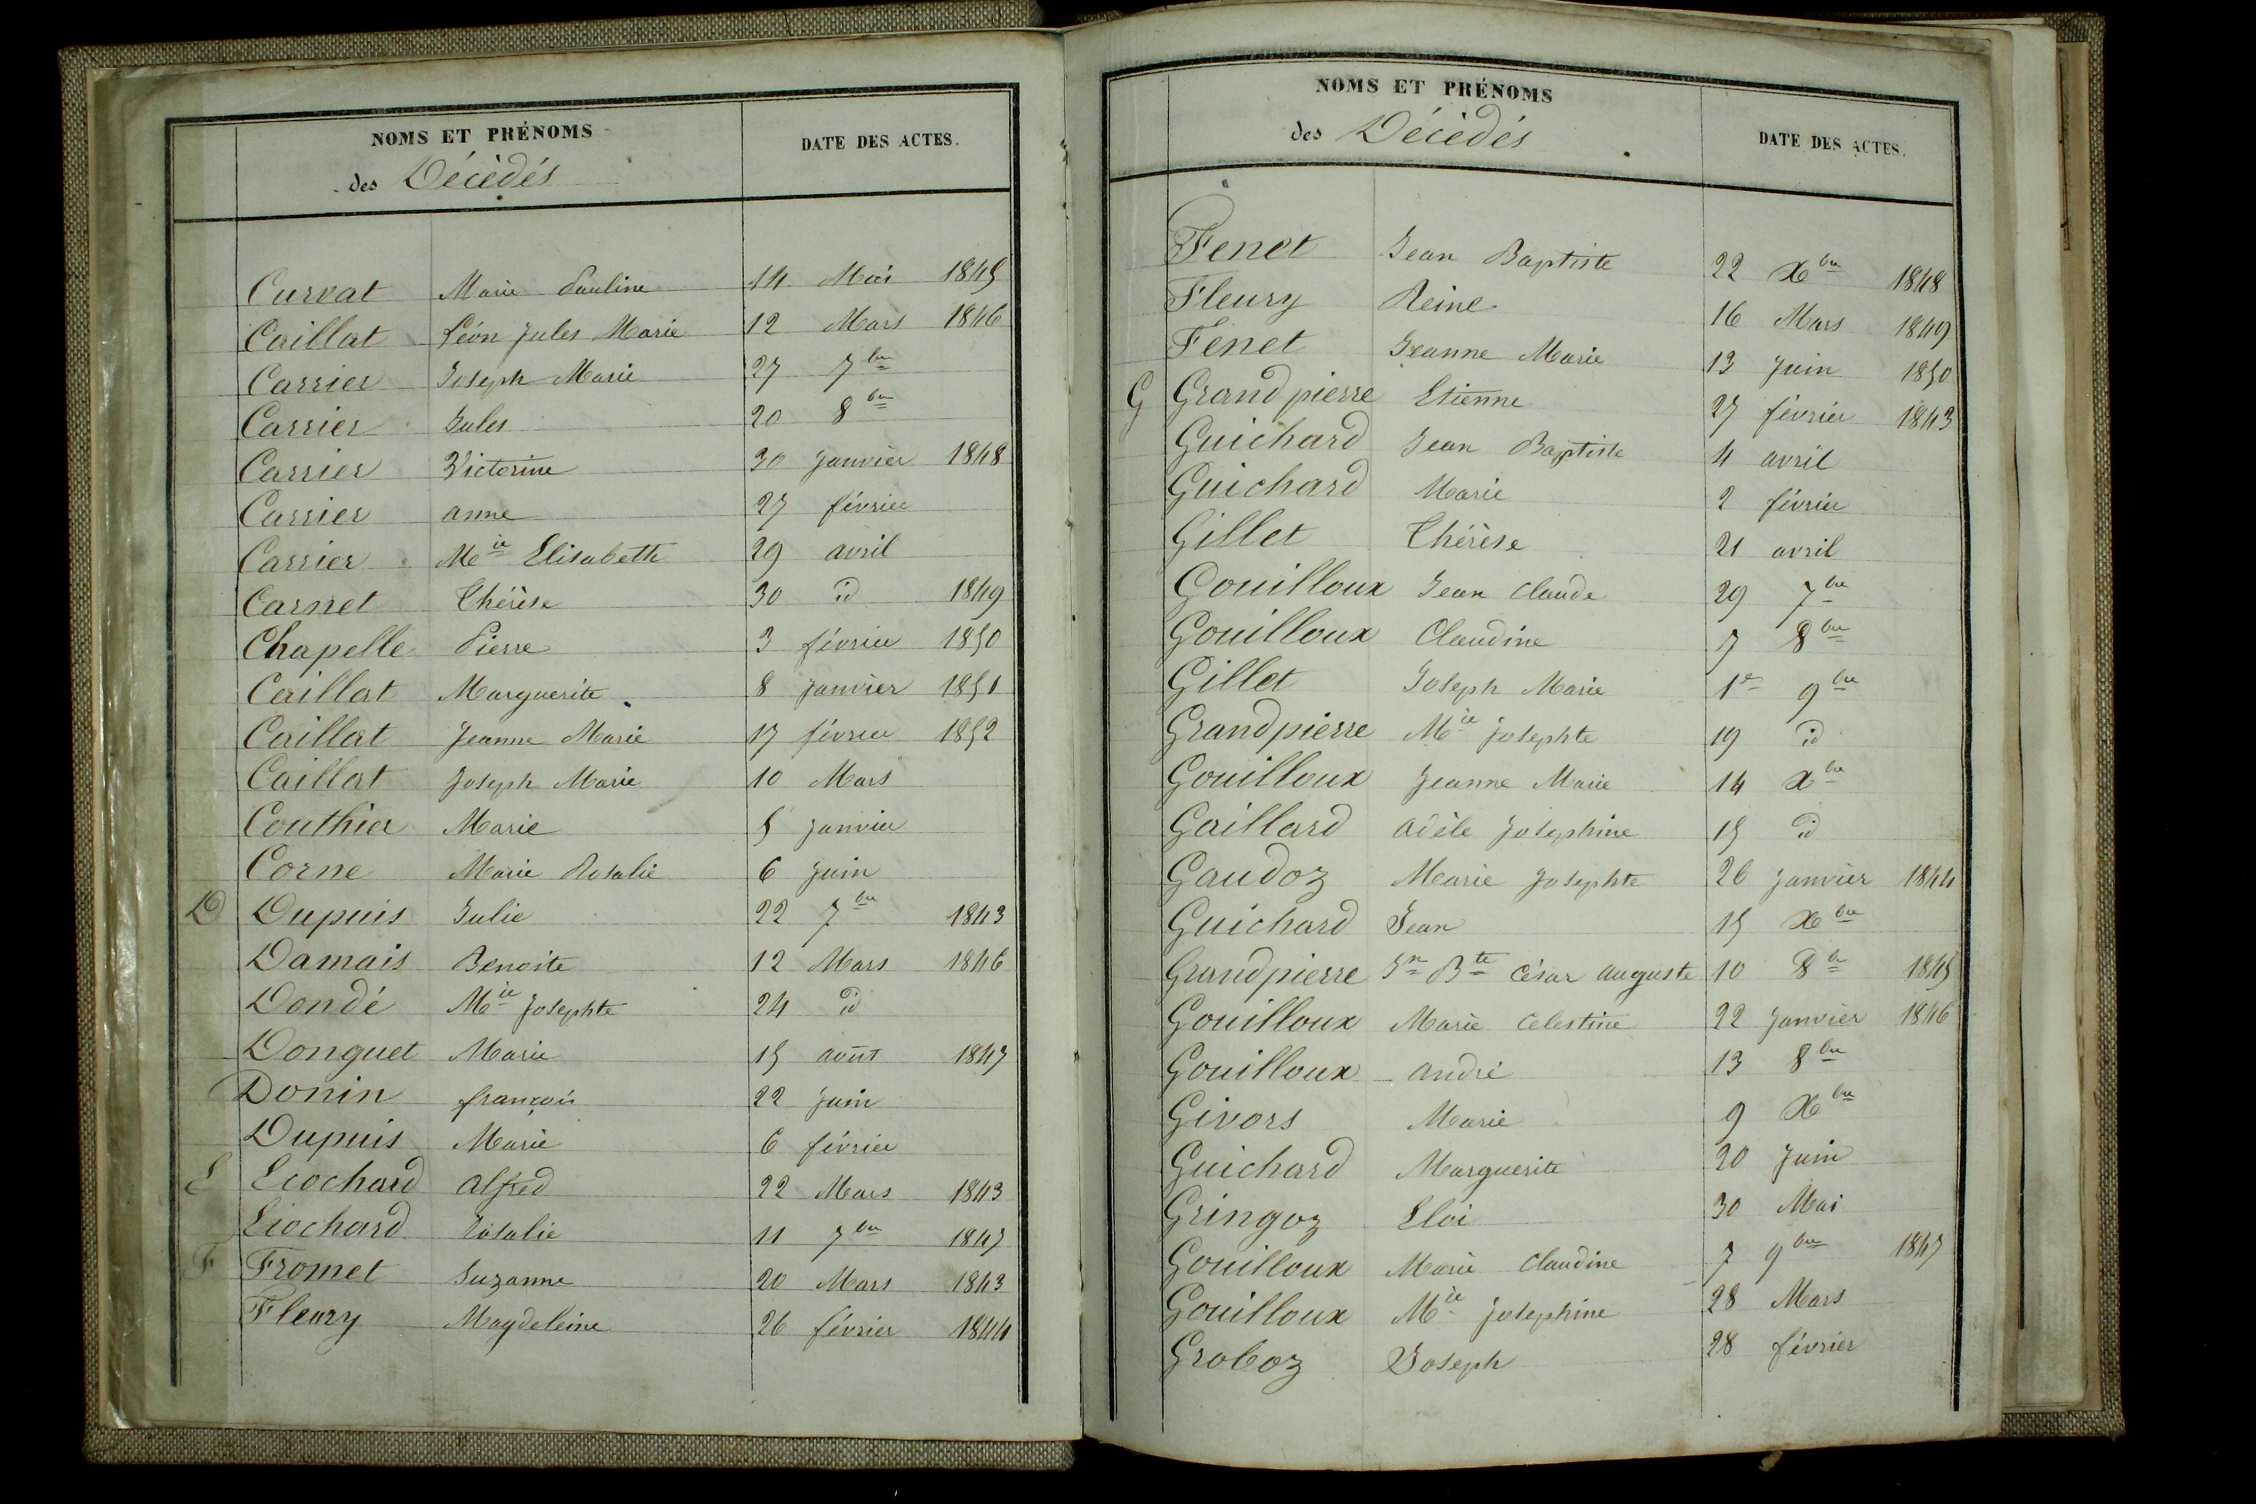 NOMS ET PRÉNOMS
des Décédés
DATE DES ACTES.
Curvat Marie Pauline 14 Mai 1845
Caillat Léon Jules Marie 12 Mars 1846
Carrier Joseph Marie 27 7bre
Carrier Jules 20 8bre
Carrier Victorine 30 Janvier 1848
Carrier anne 27 février
Carrier Mie Elisabeth 29 avril
Carnet Thérèse 30 id 1849
Chapelle Pierre 3 février 1850
Caillat Marguerite 8 Janvier 1851
Caillat Jeanne Marie 17 février 1852
Caillat Joseph Marie 10 Mars
Couthier Marie 5 Janvier
Corne Marie Rosalie 6 Juin
D Dupuis Julie 22 7bre 1843
Damais Benoite 12 Mars 1846
Dondé Mie Josephte 24 id
Donguet Marie 15 août 1847
Donin françois 22 Juin
Dupuis Marie 6 février
E Ecochard Alfred 22 Mars 1843
Eiochard Rosalie 11 7bre 1847
F Fromet Suzanne 20 Mars 1843
Fleury Magdeleine 26 février 1844
NOMS ET PRÉNOMS
des Décédés
DATE DES ACTES.
Fenet Jean Baptiste 22 Xbre 1848
Fleury Reine 16 Mars 1849
Fenet Jeanne Marie 13 Juin 1850
G Grandpierre Etienne 27 février 1843
Guichard Jean Baptiste 4 avril
Guichard Marie 2 février
Gillet Thérèse 21 avril
Gouilloux Jean Claude 29 7bre
Gouilloux Claudine 7 8bre
Gillet Joseph Marie 1er 9bre
Grandpierre Mie Josephte 19 id
Gouilloux Jeanne Marie 14 Xbre
Gaillard Adèle Josephine 15 id
Gaudoz Marie Josephte 26 Janvier 1844
Guichard Jean 15 Xbre
Grandpierre Jn Bte César Auguste 10 8bre 1845
Gouilloux Marie Celestine 22 Janvier 1846
Gouilloux André 13 8bre
Givors Marie 9 Xbre
Guichard Marguerite 20 Juin
Gringoz Eloi 30 Mai
Gouilloux Marie Claudine 7 9bre 1847
Gouilloux Mie Josephine 28 Mars
Groboz Joseph 28 février